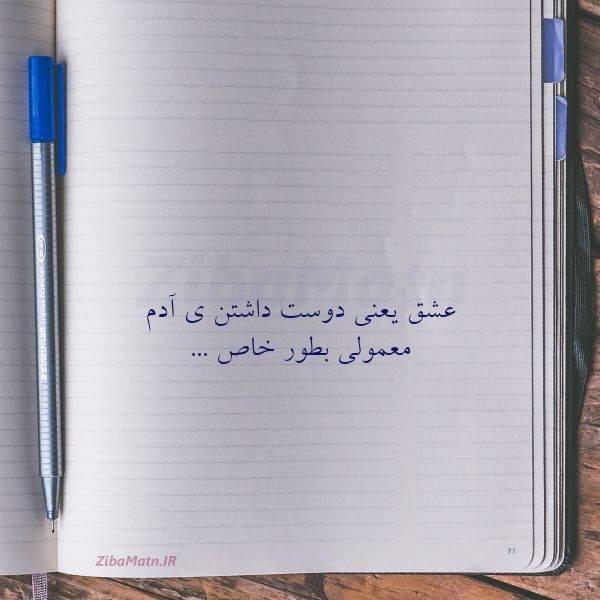 ZibaMatn
عشق یعنی دوست داشتن ی آدم
معمولی بطور خاص ...
ZibaMatn.IR
77